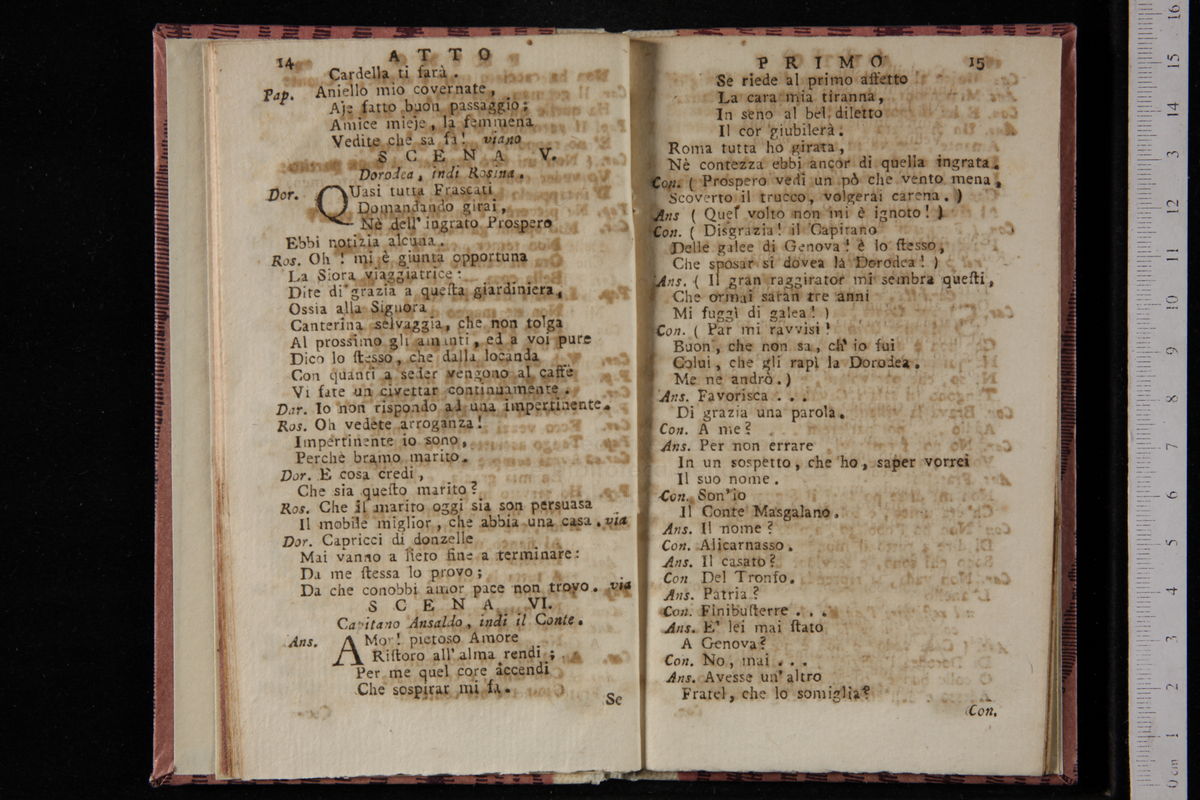 14 ATTO
Cardella ti farà.
Pap. Aniello mio covernate,
Aje fatto buon passaggio;
Amice mieje, la femmena
Vedite che sa fa! viano
SCENA V.
Dorodea, indi Rosina.
Dor. QUasi tutta Frascati
Domandando girai,
Nè dell' ingrato Prospero
Ebbi notizia alcuna.
Ros. Oh! mi è giunta opportuna
La Siora viaggiatrice:
Dite di grazia a queſta giardiniera,
Ossia alla Signora
Canterina selvaggia, che non tolga
Al prossimo gli amanti, ed a voi pure
Dico lo ſtesso, che dalla locanda
Con quanti a seder vengono al caffè
Vi fate un civettar continuamente.
Dar. Io non rispondo ad una impertinente.
Ros. Oh vedete arroganza!
Impertinente io sono,
Perchè bramo marito.
Dor. E cosa credi,
Che sia queſto marito?
Ros. Che il marito oggi sia son persuasa
Il mobile miglior, che abbia una casa. via
Dor. Capricci di donzelle
Mai vanno a fiero fine a terminare:
Da me ſtessa lo provo;
Da che conobbi amor pace non trovo. via
SCENA VI.
Capitano Ansaldo, indi il Conte.
Ans. AMor! pietoso Amore
Riſtoro all' alma rendi;
Per me quel core accendi
Che sospirar mi fa.
Se
PRIMO 15
Se riede al primo affetto
La cara mia tiranna,
In seno al bel diletto
Il cor giubilerà.
Roma tutta ho girata,
Nè contezza ebbi ancor di quella ingrata.
Con. ( Prospero vedi un pò che vento mena,
Scoverto il trucco, volgerai carena. )
Ans ( Quel volto non mi è ignoto! )
Con. ( Disgrazia! il Capitano
Delle galee di Genova! è lo ſtesso,
Che sposar si dovea la Dorodea! )
Ans. ( Il gran raggirator mi sembra queſti,
Che ormai saran tre anni
Mi fuggì di galea! )
Con. ( Par mi ravvisi!
Buon, che non sa, ch' io fui
Colui, che gli rapì la Dorodea.
Me ne andrò. )
Ans. Favorisca . . .
Di grazia una parola.
Con. A me?
Ans. Per non errare
In un sospetto, che ho, saper vorrei
Il suo nome.
Con. Son'io
Il Conte Masgalano.
Ans. Il nome?
Con. Alicarnasso.
Ans. Il casato?
Con Del Tronfo.
Ans. Patria?
Con. Finibuſterre . . .
Ans. E' lei mai ſtato
A Genova?
Con. No, mai . . .
Ans. Avesse un' altro
Fratel, che lo somiglia?
Con.